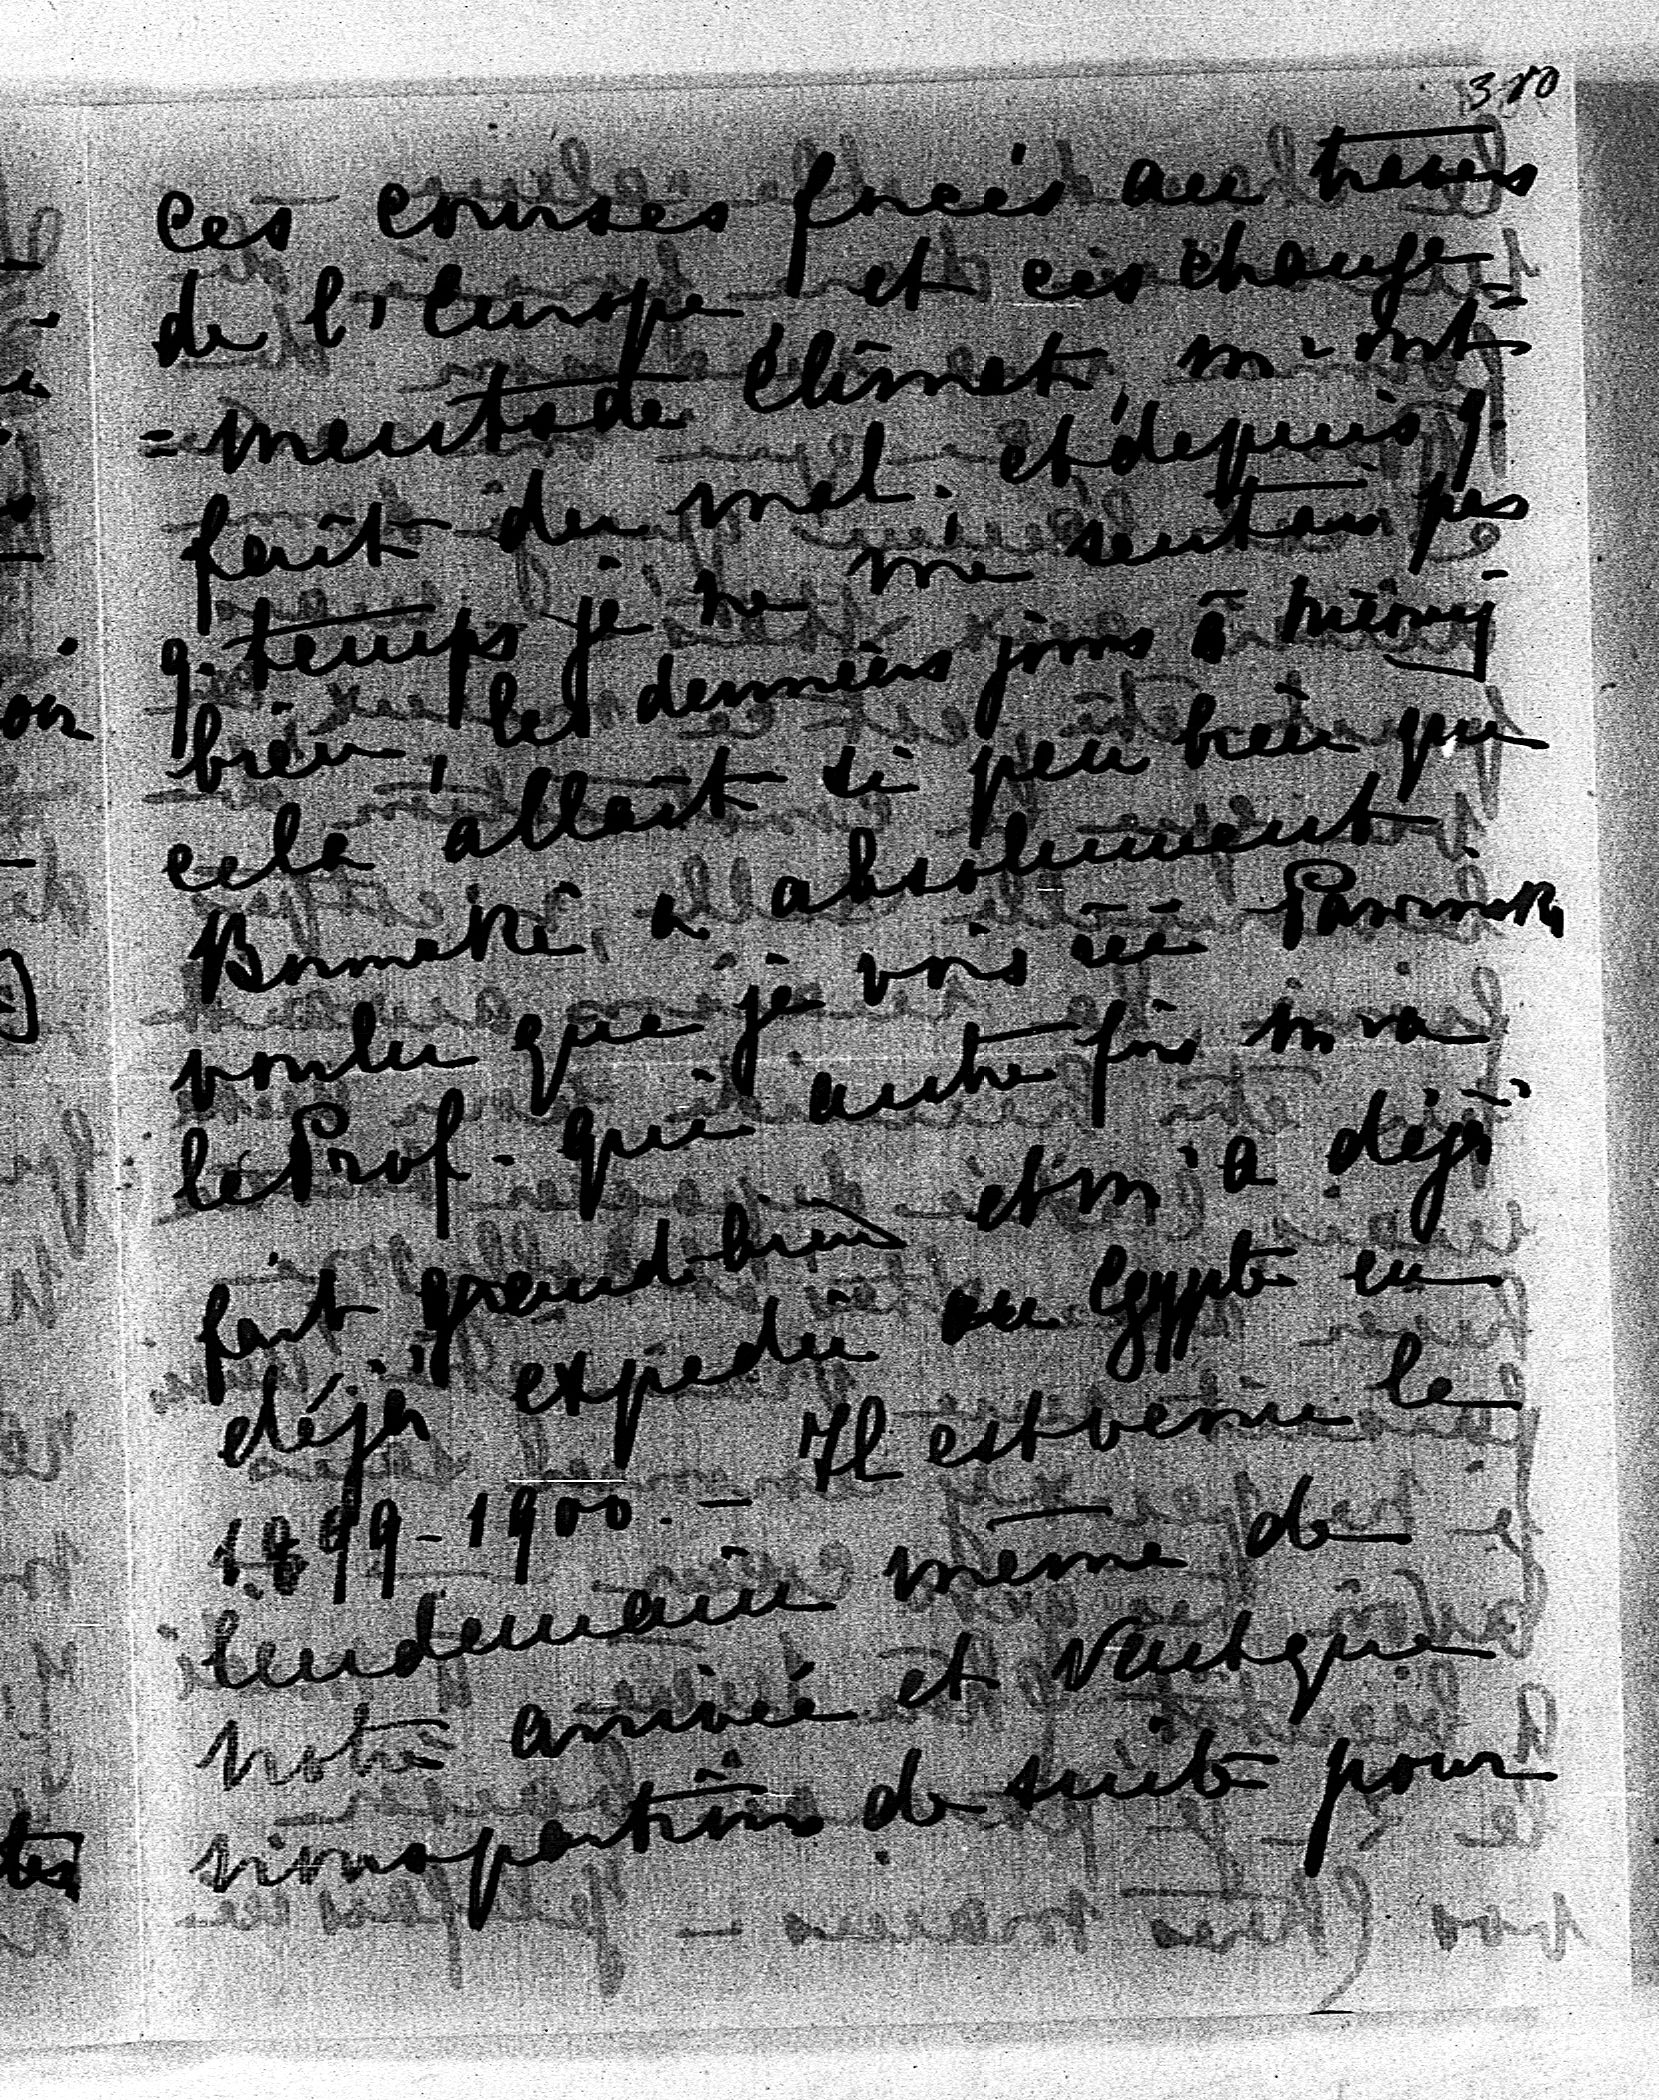 380
ces courses forcés au travers
de l'Europe et ces change
= ments de climat, m'ont =
fait du mal. et depuis q.
q. temps je ne me sentais pas
bien, les derniers jours à
cela allait si peu bien que
a absolument
voulu que je vois ici
le Prof. qui autre fois m'a
fait grand bien et m'a déjà
déjà expedié en Egypte en
1899-1900. — Il est venu le
lendemain même de
notre arrivée et veut que
nous partions de suite pour